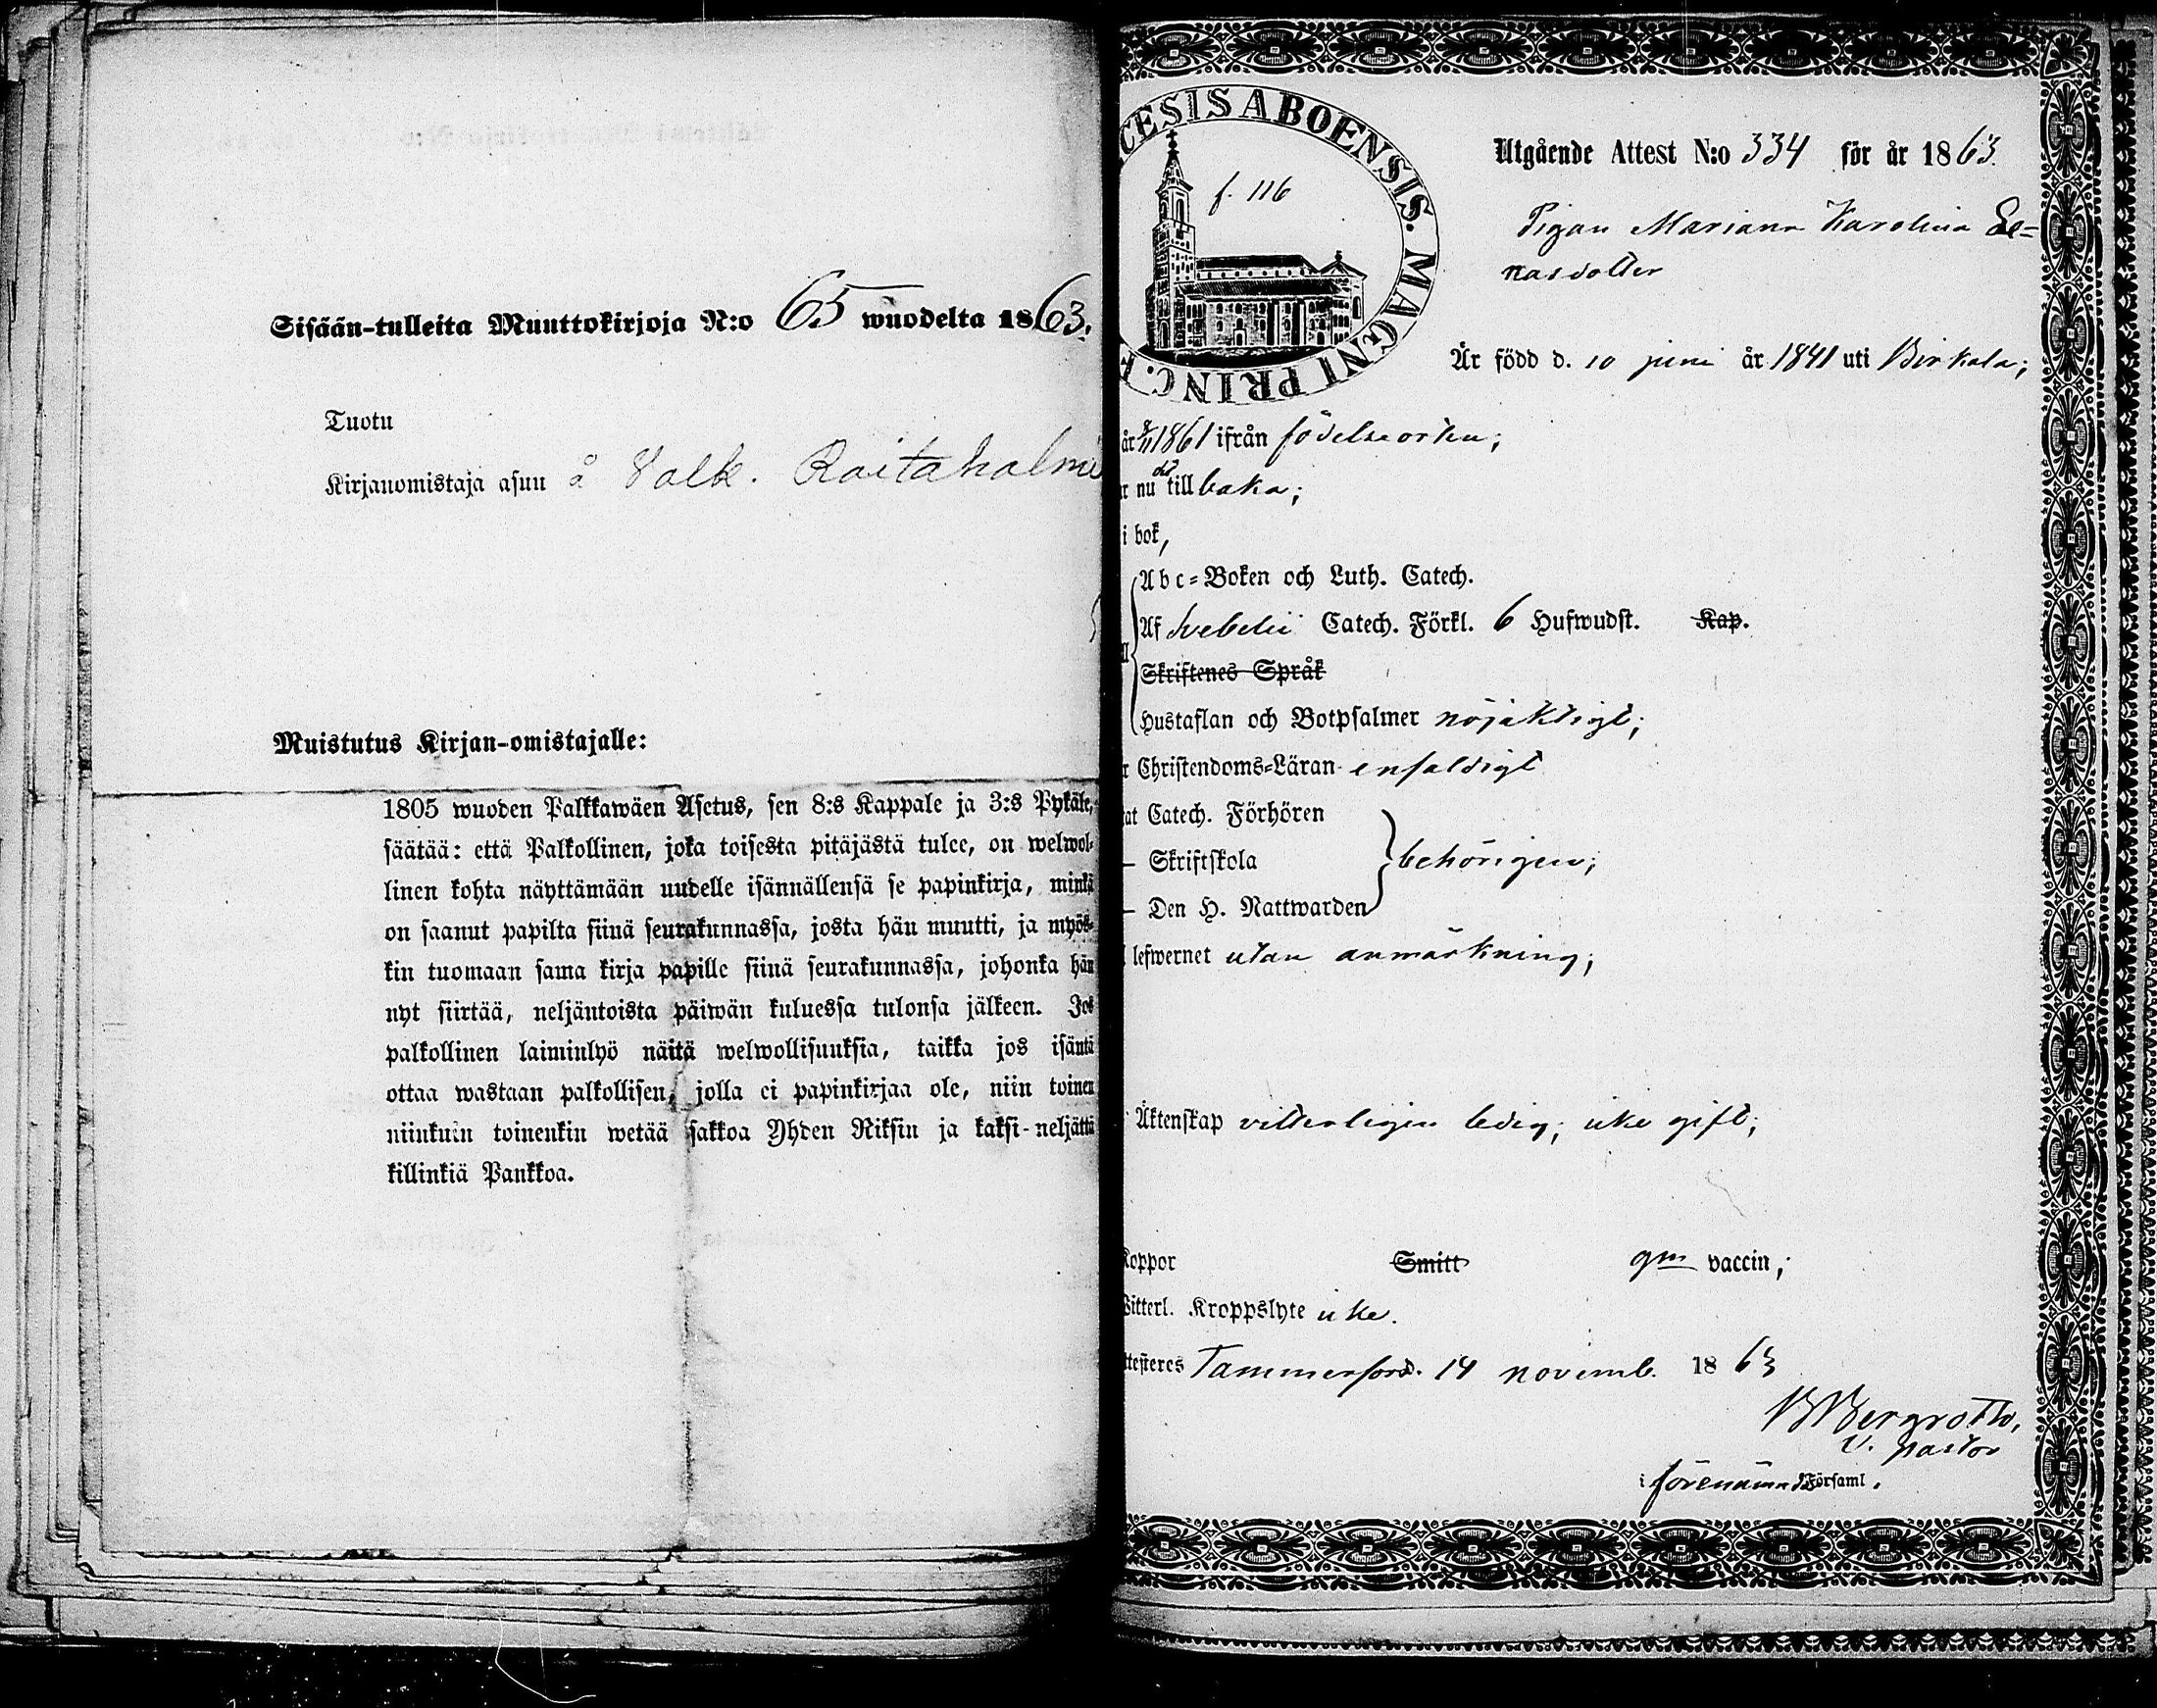 Sisään-tulleita Muuttokirjoja N:o 65 wuodelta 1863.
Tuotu
Kirjanomistaja asuu å Valk. Raitaholmi
Muistutus Kirjan-omistajalle:
1805 wuoden Palkkawäen Asetus, sen 8:s Kappale ja 3:s Pykäle,
säätää: että Palkollinen, joka toisesta pitäjästä tulee, on welwol-
linen kohta näyttämään uudelle isännällensä se papinkirja, minkä
on saanut papilta siinä seurakunnassa, josta hän muutti, ja myös-
kin tuomaan sama kirja papille siinä seurakunnassa, johonka hän
nyt siirtää, neljäntoista päiwän kuluessa tulonsa jälkeen. Jos
palkollinen laiminlyö näitä welwollisuuksia, taikka jos isäntä
ottaa wastaan palkollisen, jolla ei papinkirjaa ole, niin toinen
niinkuin toinenkin wetää sakkoa Yhden Riksin ja kaksi-neljättä
killinkiä Pankkoa.
CESIS ABOENSIS. MAGNI PRINC. F
f. 116
Utgående Attest N:o 334 för år 1863.
Pigan Mariana Karolina Ee=
nasdotter
Är född d. 10 juni år 1841 uti Birkala;
år 1861 ifrån födelseorten;
r nu dit tillbaka;
i bok,
Abc=Boken och Luth. Catech.
Af Svebelii Catech. Förkl. 6 Hufwudst. Kap.
Skriftenes Språk
Hustaflan och Botpsalmer nöjaktigt;
r Christendoms=Läran enfaldigt
at Catech. Förhören
— Skriftskola behörigen;
— Den H. Nattwarden
lefwernet utan anmärkning;
Äktenskap vitterligen ledig; icke gift;
Koppor Smitt gm vaccin;
Witterl. Kroppslyte icke.
ttesteres Tammerfors d. 14 novemb. 1863
B Bergroth,
v. pastor
i förenämnd Församl.